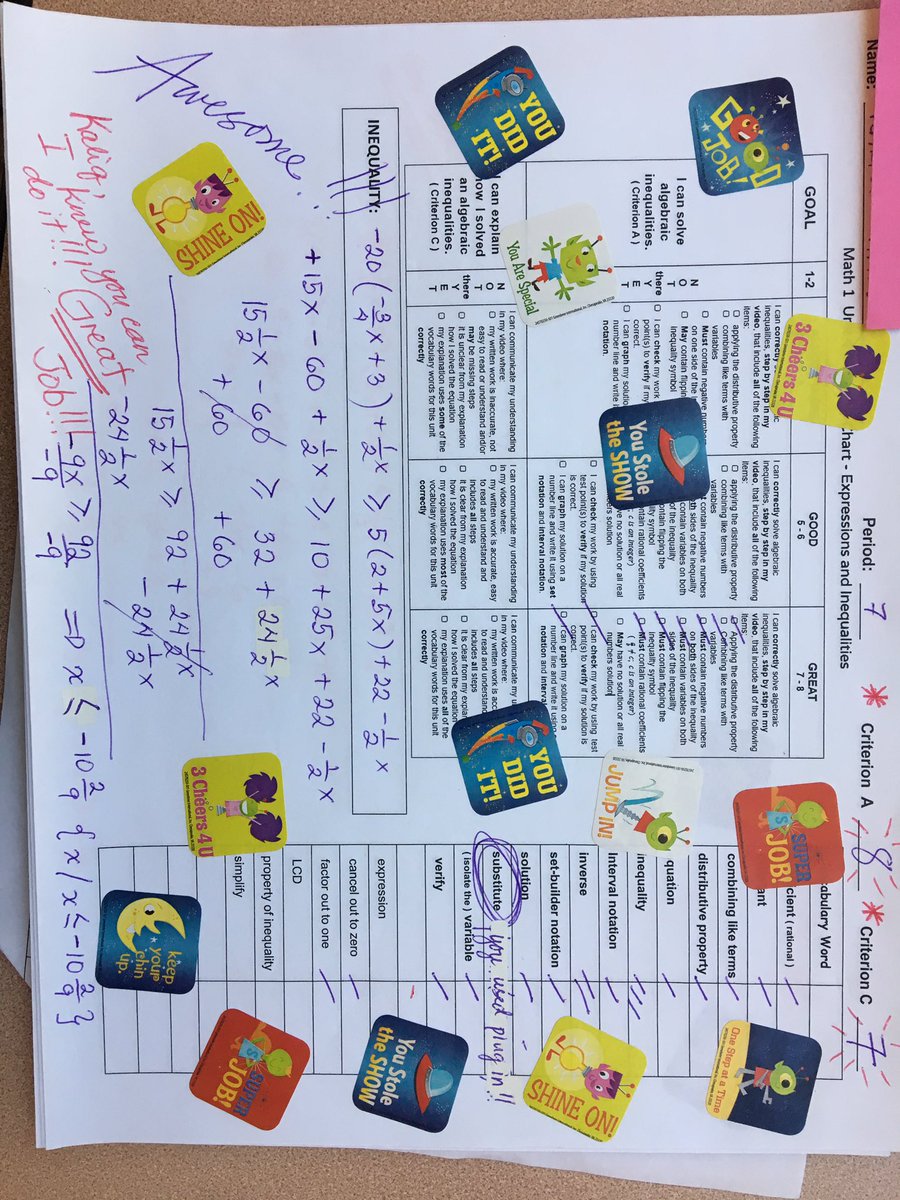 Name:
Period: 7
* Criterion A 8 * Criterion C 7
Math 1
Chart - Expressions and Inequalities
GOAL
1-2
GOOD
5 - 6
GREAT
7 - 8
I can solve
algebraic
inequalities.
( Criterion A )
N
O
T
there
Y
E
T
I can correctly
inequalities, step by step in my
video, that include all of the following
items:
☐ applying the distributive property
☐ combining like terms with
variables
☐ Must contain negative
on one side of the
☐ May contain
inequality symbol
☐ I can check my work
point(s) to verify if my
correct.
☐ I can graph my solution
number line and write
notation.
I can correctly solve algebraic
inequalities, step by step in my
video, that include all of the following
items:
☐ applying the distributive property
☐ combining like terms with
variables
contain negative numbers
sides of the inequality
contain variables on both
of the inequality
contain flipping the
symbol
rational coefficients
c is an integer)
have no solution or all real
numbers solution
☐ I can check my work by using
test point(s) to verify if my solution
is correct.
☐ I can graph my solution on a
number line and write it using set
notation and interval notation.
I can correctly solve algebraic
inequalities, step by step in my
video, that include all of the following
items:
☐ Applying the distributive property
☐ Combining like terms with
variables
☐ Must contain negative numbers
on both sides of the inequality
☐ Must contain variables on both
sides of the inequality
☐ Must contain flipping the
inequality symbol
☐ Must contain rational coefficients
c is an integer)
☐ May have no solution or all real
numbers solution
☐ I can check my work by using test
point(s) to verify if my solution is
correct.
☐ I can graph my solution on a
number line and write it using set
notation and interval
I can explain
how I solved
an algebraic
inequalities.
( Criterion C )
N
O
T
there
Y
E
T
I can communicate my understanding
in my video where:
☐ my written work is inaccurate, not
easy to read or understand and/or
may be missing steps
☐ it is unclear from my explanation
how I solved the equation
☐ my explanation uses some of the
vocabulary words for this unit
correctly
I can communicate my understanding
in my video where:
☐ my written work is accurate, easy
to read and understand and
includes all steps
☐ it is clear from my explanation
how I solved the equation
☐ my explanation uses most of the
vocabulary words for this unit
correctly
I can communicate my
in my video where:
☐ my written work is
to read and understand
includes all steps
☐ it is clear from my
how I solved the equation
☐ my explanation uses all of the
vocabulary words for this unit
correctly
INEQUALITY: -20(-3/4x + 3) + 1/2x ≥ 5(2+5x)+22 - 1/2x
+15x - 60 + 1/2x ≥ 10 + 25x + 22 - 1/2x
15 1/2x - 60 ≥ 32 + 24 1/2x
+60 +60
15 1/2x ≥ 92 + 24 1/2x
-24 1/2x -24 1/2x
-9x/-9 ≥ 92/-9 => x ≤ -10 2/9 {x/x ≤ -10 2/9}
Awesome!
Kaliq, I know you can
do it!!! Great
Job!!!
Vocabulary Word
combining like terms
distributive property
inequality
interval notation
inverse
set-builder notation
solution
substitute you used plug in!!
( isolate the ) variable
verify
expression
cancel out to zero
factor out to one
LCD
property of inequality
simplify
GOOD JOB!
YOU DID IT!
SHINE ON!
You Are Special
3 Cheers 4 U
You Stole the SHOW
YOU DID IT!
JUMP IN!
SUPER JOB!
3 Cheers 4 U
keep your chin up.
SUPER JOB!
You Stole the SHOW
SHINE ON!
One Step at a Time